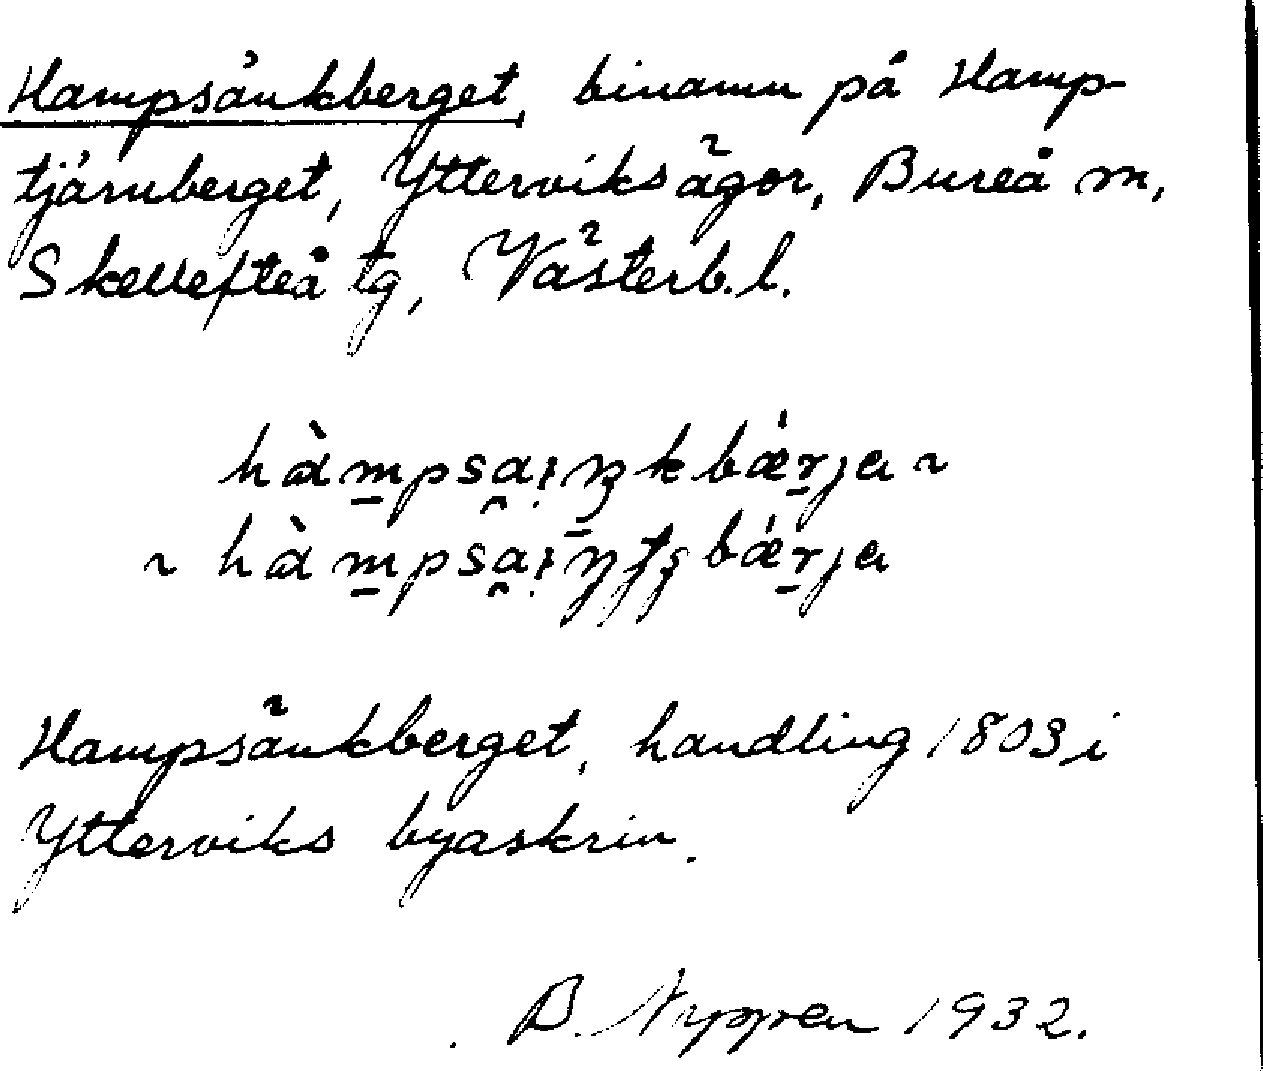 Hampsänkberget, binamn på Hamp-
tjärnberget, Ytterviks ägor, Bureå sn,
Skellefteå tg, Västerb. l.
hàm̱psa̯ịŋ̱kbǽṟja ~
~ hàm̱psa̯ịɲţʂbǽṟja
Hampsänkberget, handling 1803 i
Ytterviks byaskrin.
B. Nyppen 1932.